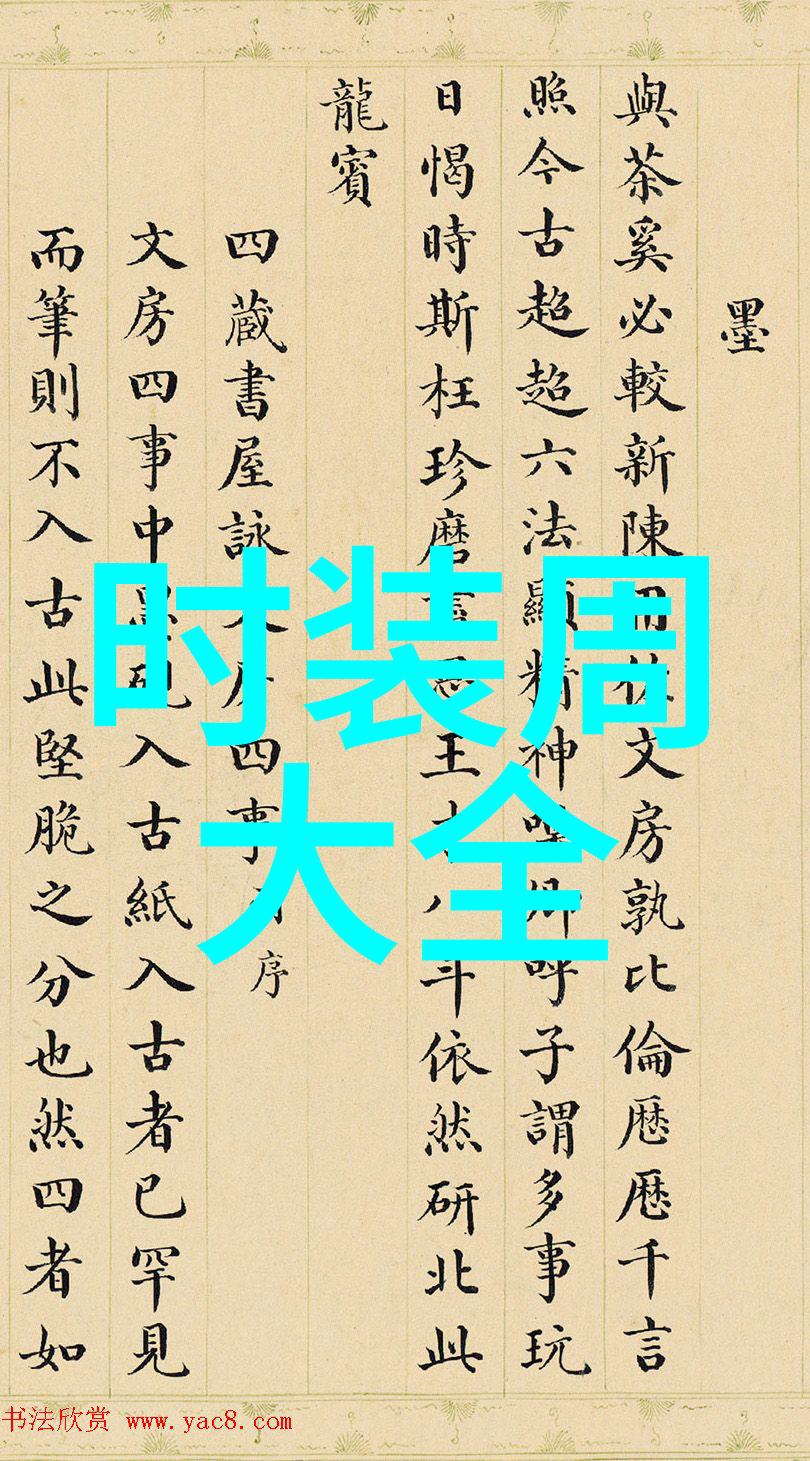 墨
與茶奚必較新陳用佐文房孰比倫歷歷千言
照今古超超六法顯精神卿呼子謂多事玩
日愒時斯枉珍磨王斗依然研北此
龍賓
四蔵書屋詠文房四事有序
文房四事中墨硯入古紙入古者已罕見
而筆則不入古此堅脆之分也然四者如
时装周
大全
书法欣赏 www.yac8.com